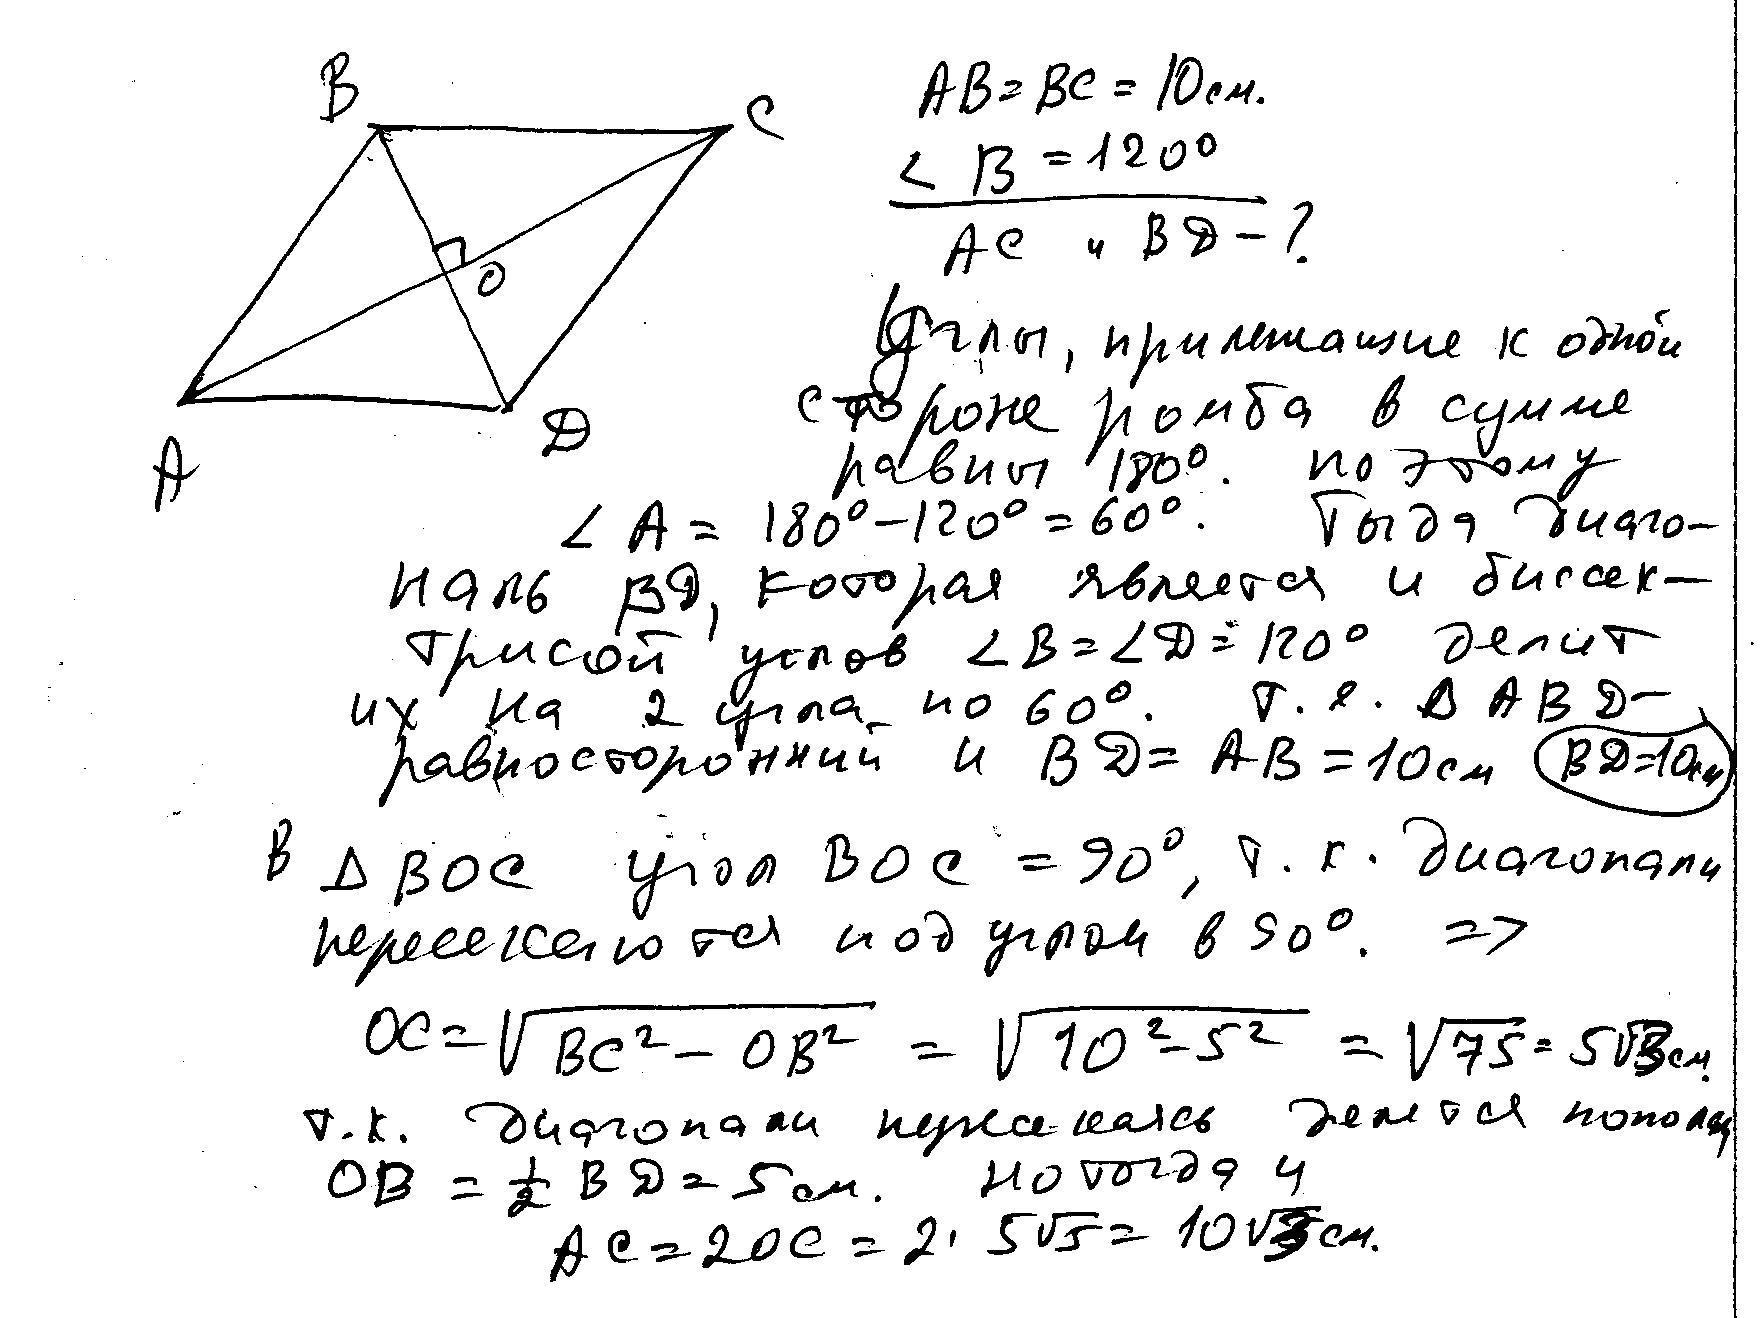 B
C
O
A
D
AB = BC = 10 см.
∠ B = 120°
AC и BD - ?
Углы, прилежащие к одной
стороне ромба в сумме
равны 180°. поэтому
∠ A = 180° - 120° = 60°. Тогда диаго-
наль BD, которая является и биссек-
трисой углов ∠B = ∠D = 120° делит
их на 2 угла по 60°. т.е. Δ ABD -
равносторонний и BD = AB = 10 см BD = 10 см
В Δ BOC угол BOC = 90°, т.к. диагонали
пересекаются под углом в 90°. =>
OC = √BC² - OB² = √10² - 5² = √75 = 5√3 см.
т.к. диагонали пересекаясь делятся пополам
OB = 1/2 BD = 5 см. но тогда и
AC = 2OC = 2 · 5√3 = 10√3 см.